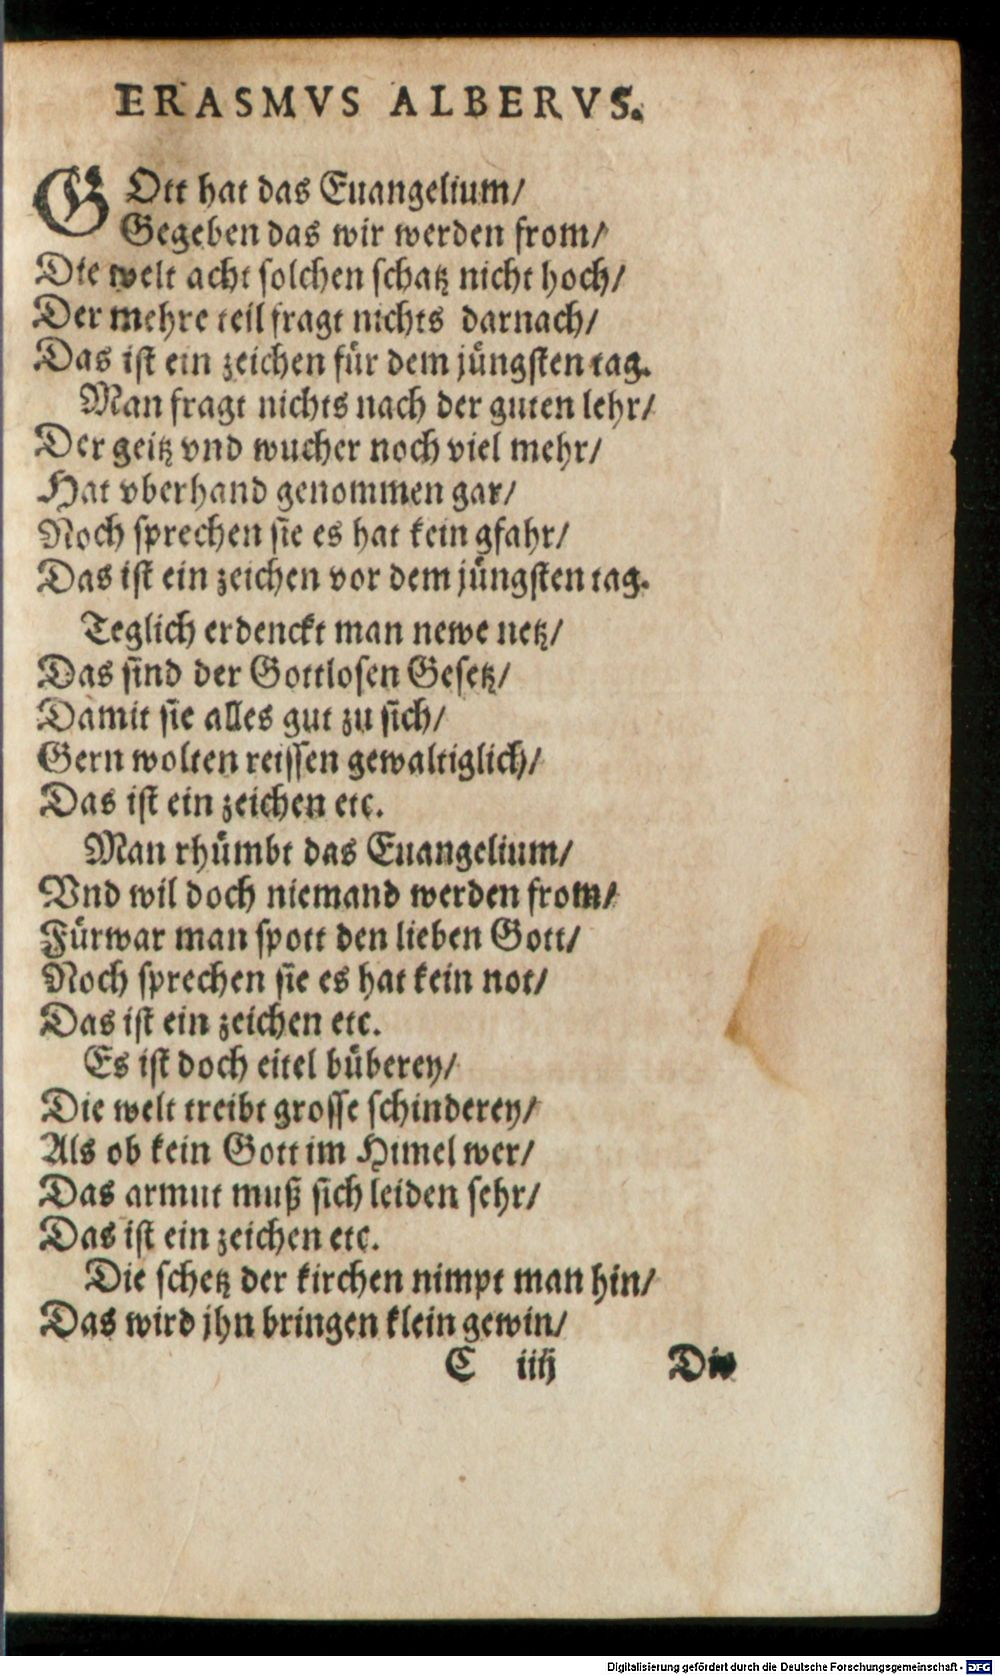 ERASMVS ALBERVS.
GOtt hat das Euangelium/
Gegeben das wir werden from/
Die welt acht solchen schatz nicht hoch/
Der mehre teil fragt nichts darnach/
Das ist ein zeichen für dem jüngsten tag.
Man fragt nichts nach der guten lehr/
Der geitz vnd wucher noch viel mehr/
Hat vberhand genommen gar/
Noch sprechen sie es hat kein gfahr/
Das ist ein zeichen vor dem jüngsten tag.
Teglich erdenckt man newe netz/
Das sind der Gottlosen Gesetz/
Damit sie alles gut zu sich/
Gern wolten reissen gewaltiglich/
Das ist ein zeichen etc.
Man rhümbt das Euangelium/
Vnd wil doch niemand werden from/
Fürwar man spott den lieben Gott/
Noch sprechen sie es hat kein not/
Das ist ein zeichen etc.
Es ist doch eitel büberey/
Die welt treibt grosse schinderey/
Als ob kein Gott im Himel wer/
Das armut muß sich leiden sehr/
Das ist ein zeichen etc.
Die schetz der kirchen nimpt man hin/
Das wird jhn bringen klein gewin/
C iiij Die
Digitalisierung gefördert durch die Deutsche Forschungsgemeinschaft - DFG